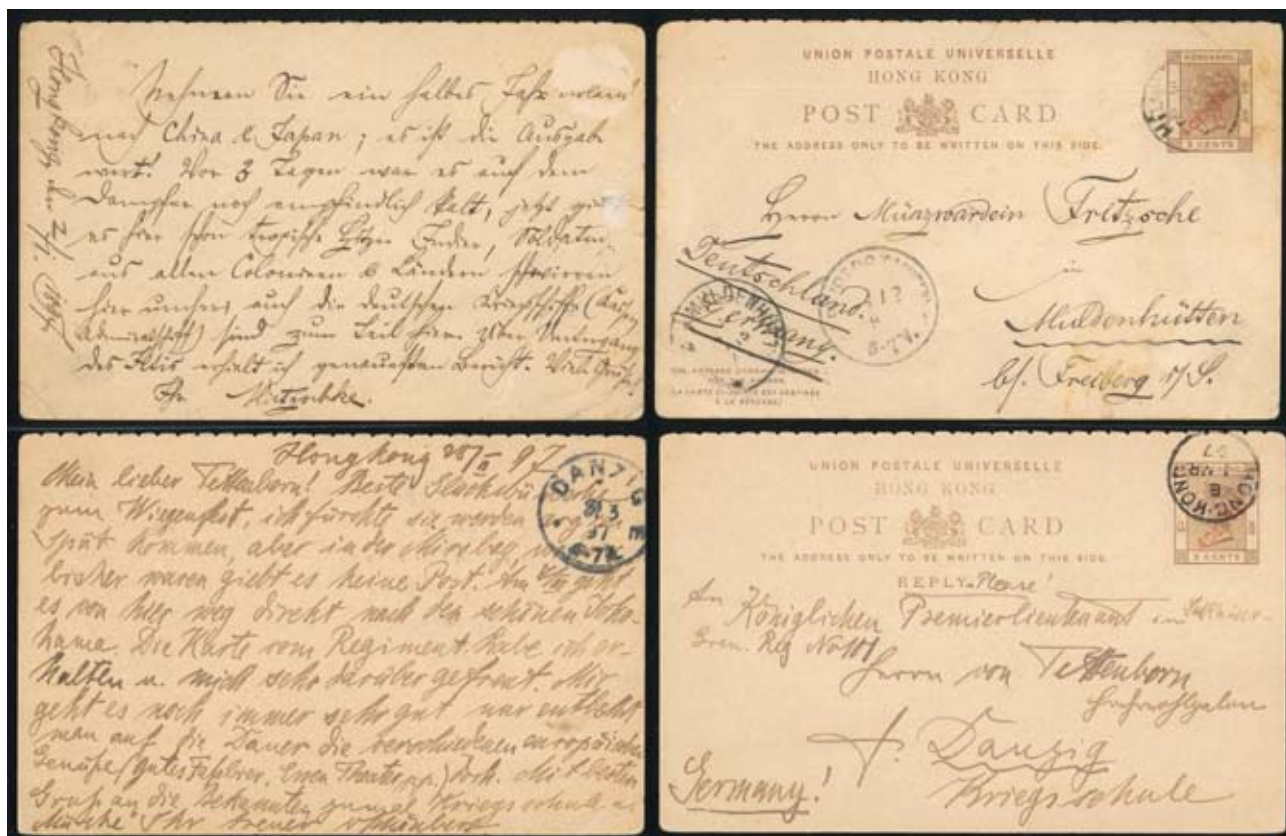 Hongkong den 2/4. 1897
Nehmen Sie ein halbes Jahr
nach China & Japan; es ist die Ausgabe
wert! Vor 3 Tagen war es auf dem
Dampfer noch empfindlich kalt, jetzt
es hier schon tropische Hitze. Inder, Soldaten
aus allen Colonieen & Ländern schwirren
hier umher; auch die deutschen Kriegsschiffe
sind zum Teil hier. Über Untergang
des Iltis erhielt ich genauesten Bericht. Viele Grüße!
Ihr
UNION POSTALE UNIVERSELLE
HONG KONG
POST CARD
THE ADDRESS ONLY TO BE WRITTEN ON THIS SIDE.
HONGKONG
3 CENTS
Herrn Münzwardein Fritzsche
in
Muldenhütten
b/. Freiberg i/S.
Deutschland.
Germany.
Hongkong 28/II 97
DANZIG
Mein lieber Tettenborn! Beste
zum Wiegenfest, ich fürchte sie werden arg
spät kommen, aber in der Mirsbay, wo wir
bisher waren giebt es keine Post. Am geht
es von hier weg direkt nach den schönen Yoko-
hama. Die Karte vom Regiment habe ich er-
halten u. mich sehr darüber gefreut. Mir
geht es noch immer sehr gut nur entbehrt
man auf die Dauer die verschiedenen europäischen
Genüße (gutes Essen Theater pp.) doch. Mit besten
Gruß an die Bekannten zumal Kriegsschule u.
Ihr treuer
UNION POSTALE UNIVERSELLE
HONG KONG
POST CARD
THE ADDRESS ONLY TO BE WRITTEN ON THIS SIDE.
REPLY. Please!
HONG-KONG
3 CENTS
An Königlichen Premierlieutenant im
Gren. Reg No 101
Herrn von Tettenborn
Danzig
Germany!
Kriegsschule